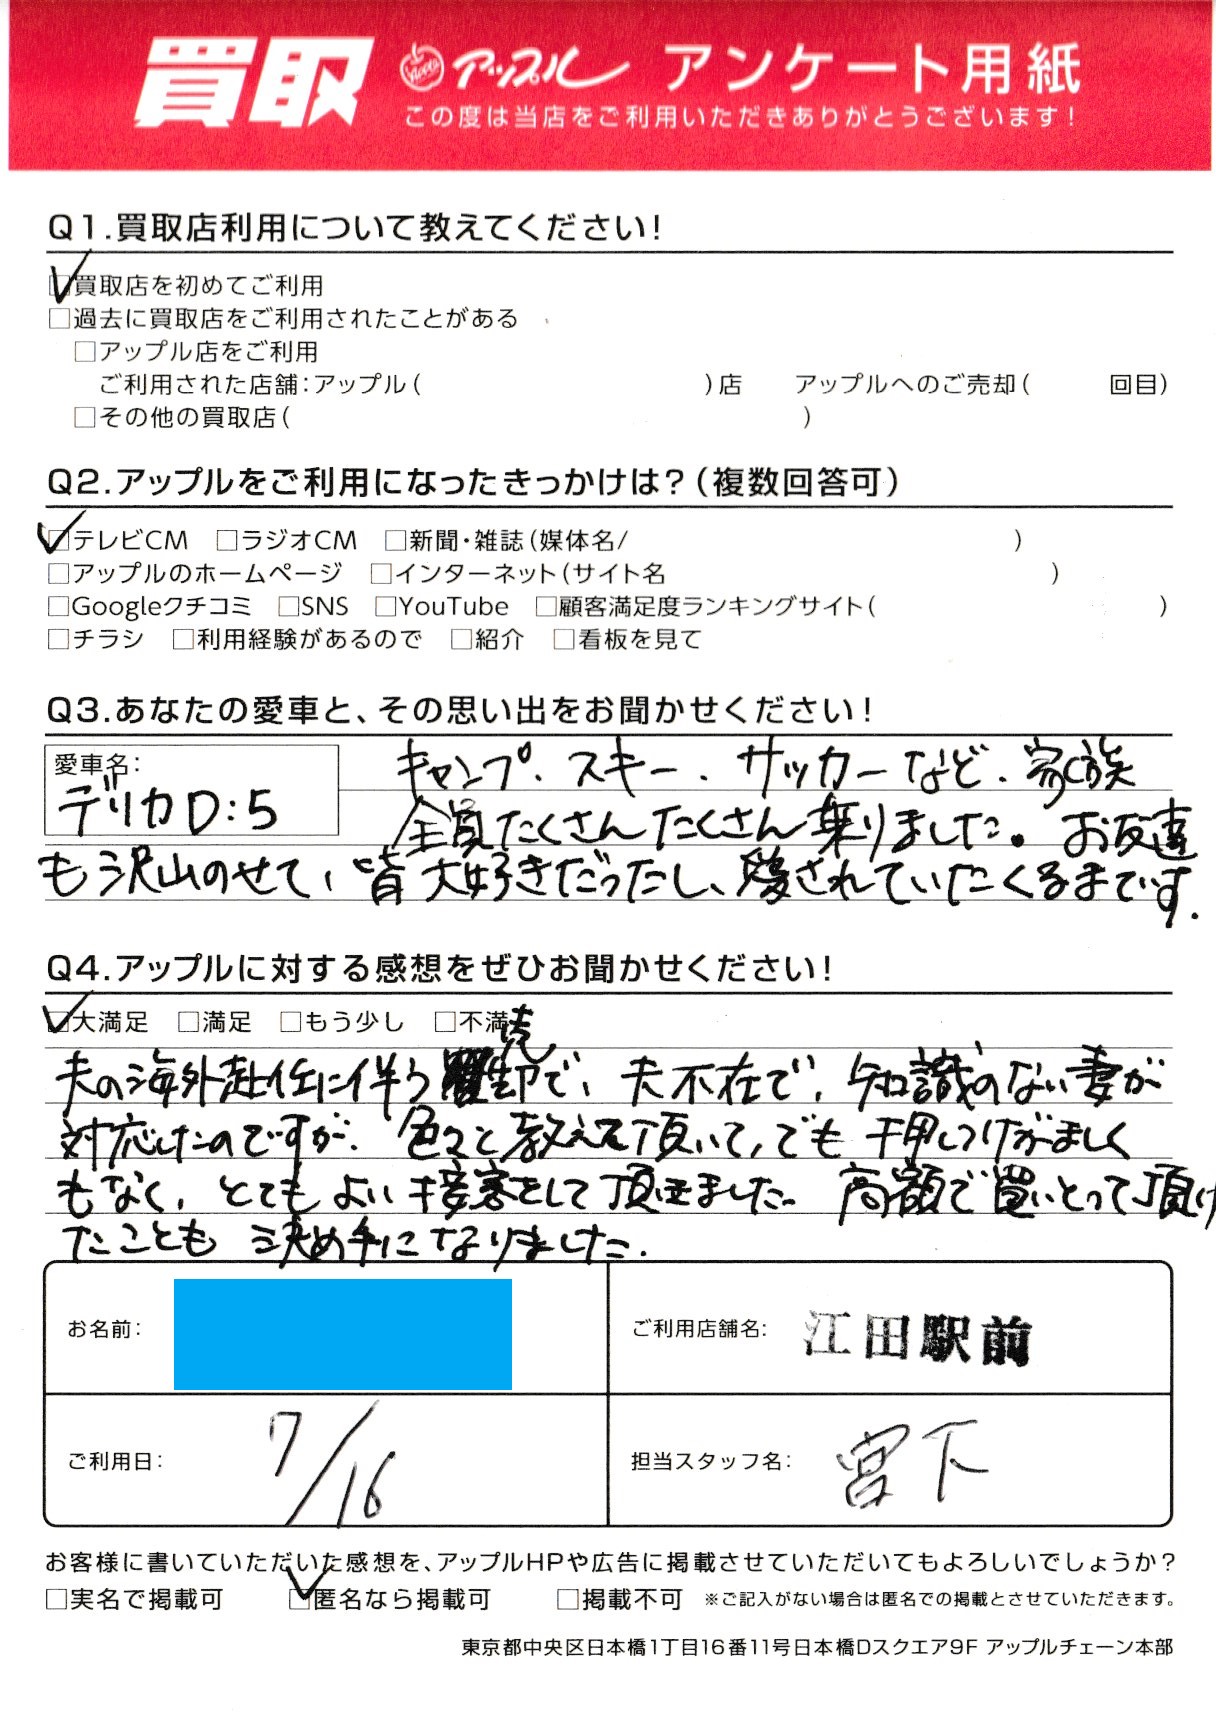 買取 アップル アンケート用紙
この度は当店をご利用いただきありがとうございます！
Q1.買取店利用について教えてください！
☑買取店を初めてご利用
□過去に買取店をご利用されたことがある
□アップル店をご利用
ご利用された店舗：アップル（ ）店 アップルへのご売却（ 回目）
□その他の買取店（ ）
Q2.アップルをご利用になったきっかけは？（複数回答可）
☑テレビCM □ラジオCM □新聞・雑誌（媒体名/ ）
□アップルのホームページ □インターネット（サイト名 ）
□Googleクチコミ □SNS □YouTube □顧客満足度ランキングサイト（ ）
□チラシ □利用経験があるので □紹介 □看板を見て
Q3.あなたの愛車と、その思い出をお聞かせください！
愛車名：
デリカD:5
キャンプ、スキー、サッカーなど、家族
全員たくさんたくさん乗りました。お友達
も沢山のせて、皆大好きだったし、愛されていたくるまです.
Q4.アップルに対する感想をぜひお聞かせください！
☑大満足 □満足 □もう少し □不満
夫の海外赴任に伴う売却で、夫不在で、知識のない妻が
対応したのですが、色々と教えて頂いて、でも押しつけがましく
もなく、とてもよい接客をして頂きました。高額で買いとって頂け
たことも決め手になりました.
お名前： ご利用店舗名： 江田駅前
ご利用日： 7/16 担当スタッフ名： 宮下
お客様に書いていただいた感想を、アップルHPや広告に掲載させていただいてもよろしいでしょうか？
□実名で掲載可 ☑匿名なら掲載可 □掲載不可 ※ご記入がない場合は匿名での掲載とさせていただきます。
東京都中央区日本橋1丁目16番11号日本橋Dスクエア9F アップルチェーン本部